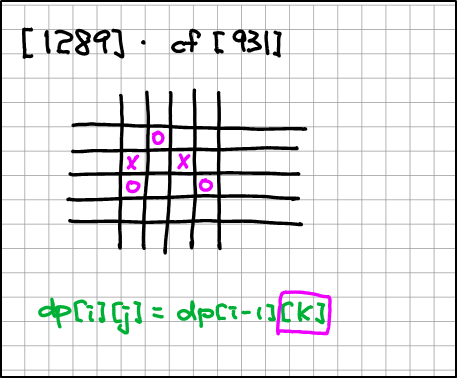 [1289] . cf [931]
O
X X
O O
dp[i][j] = dp[i-1][k]